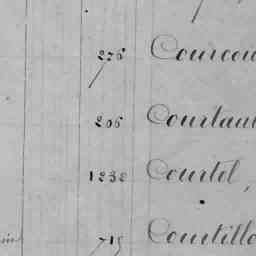 276 Courcou
206 Courtau
1232 Courtel,
715 Courtillo